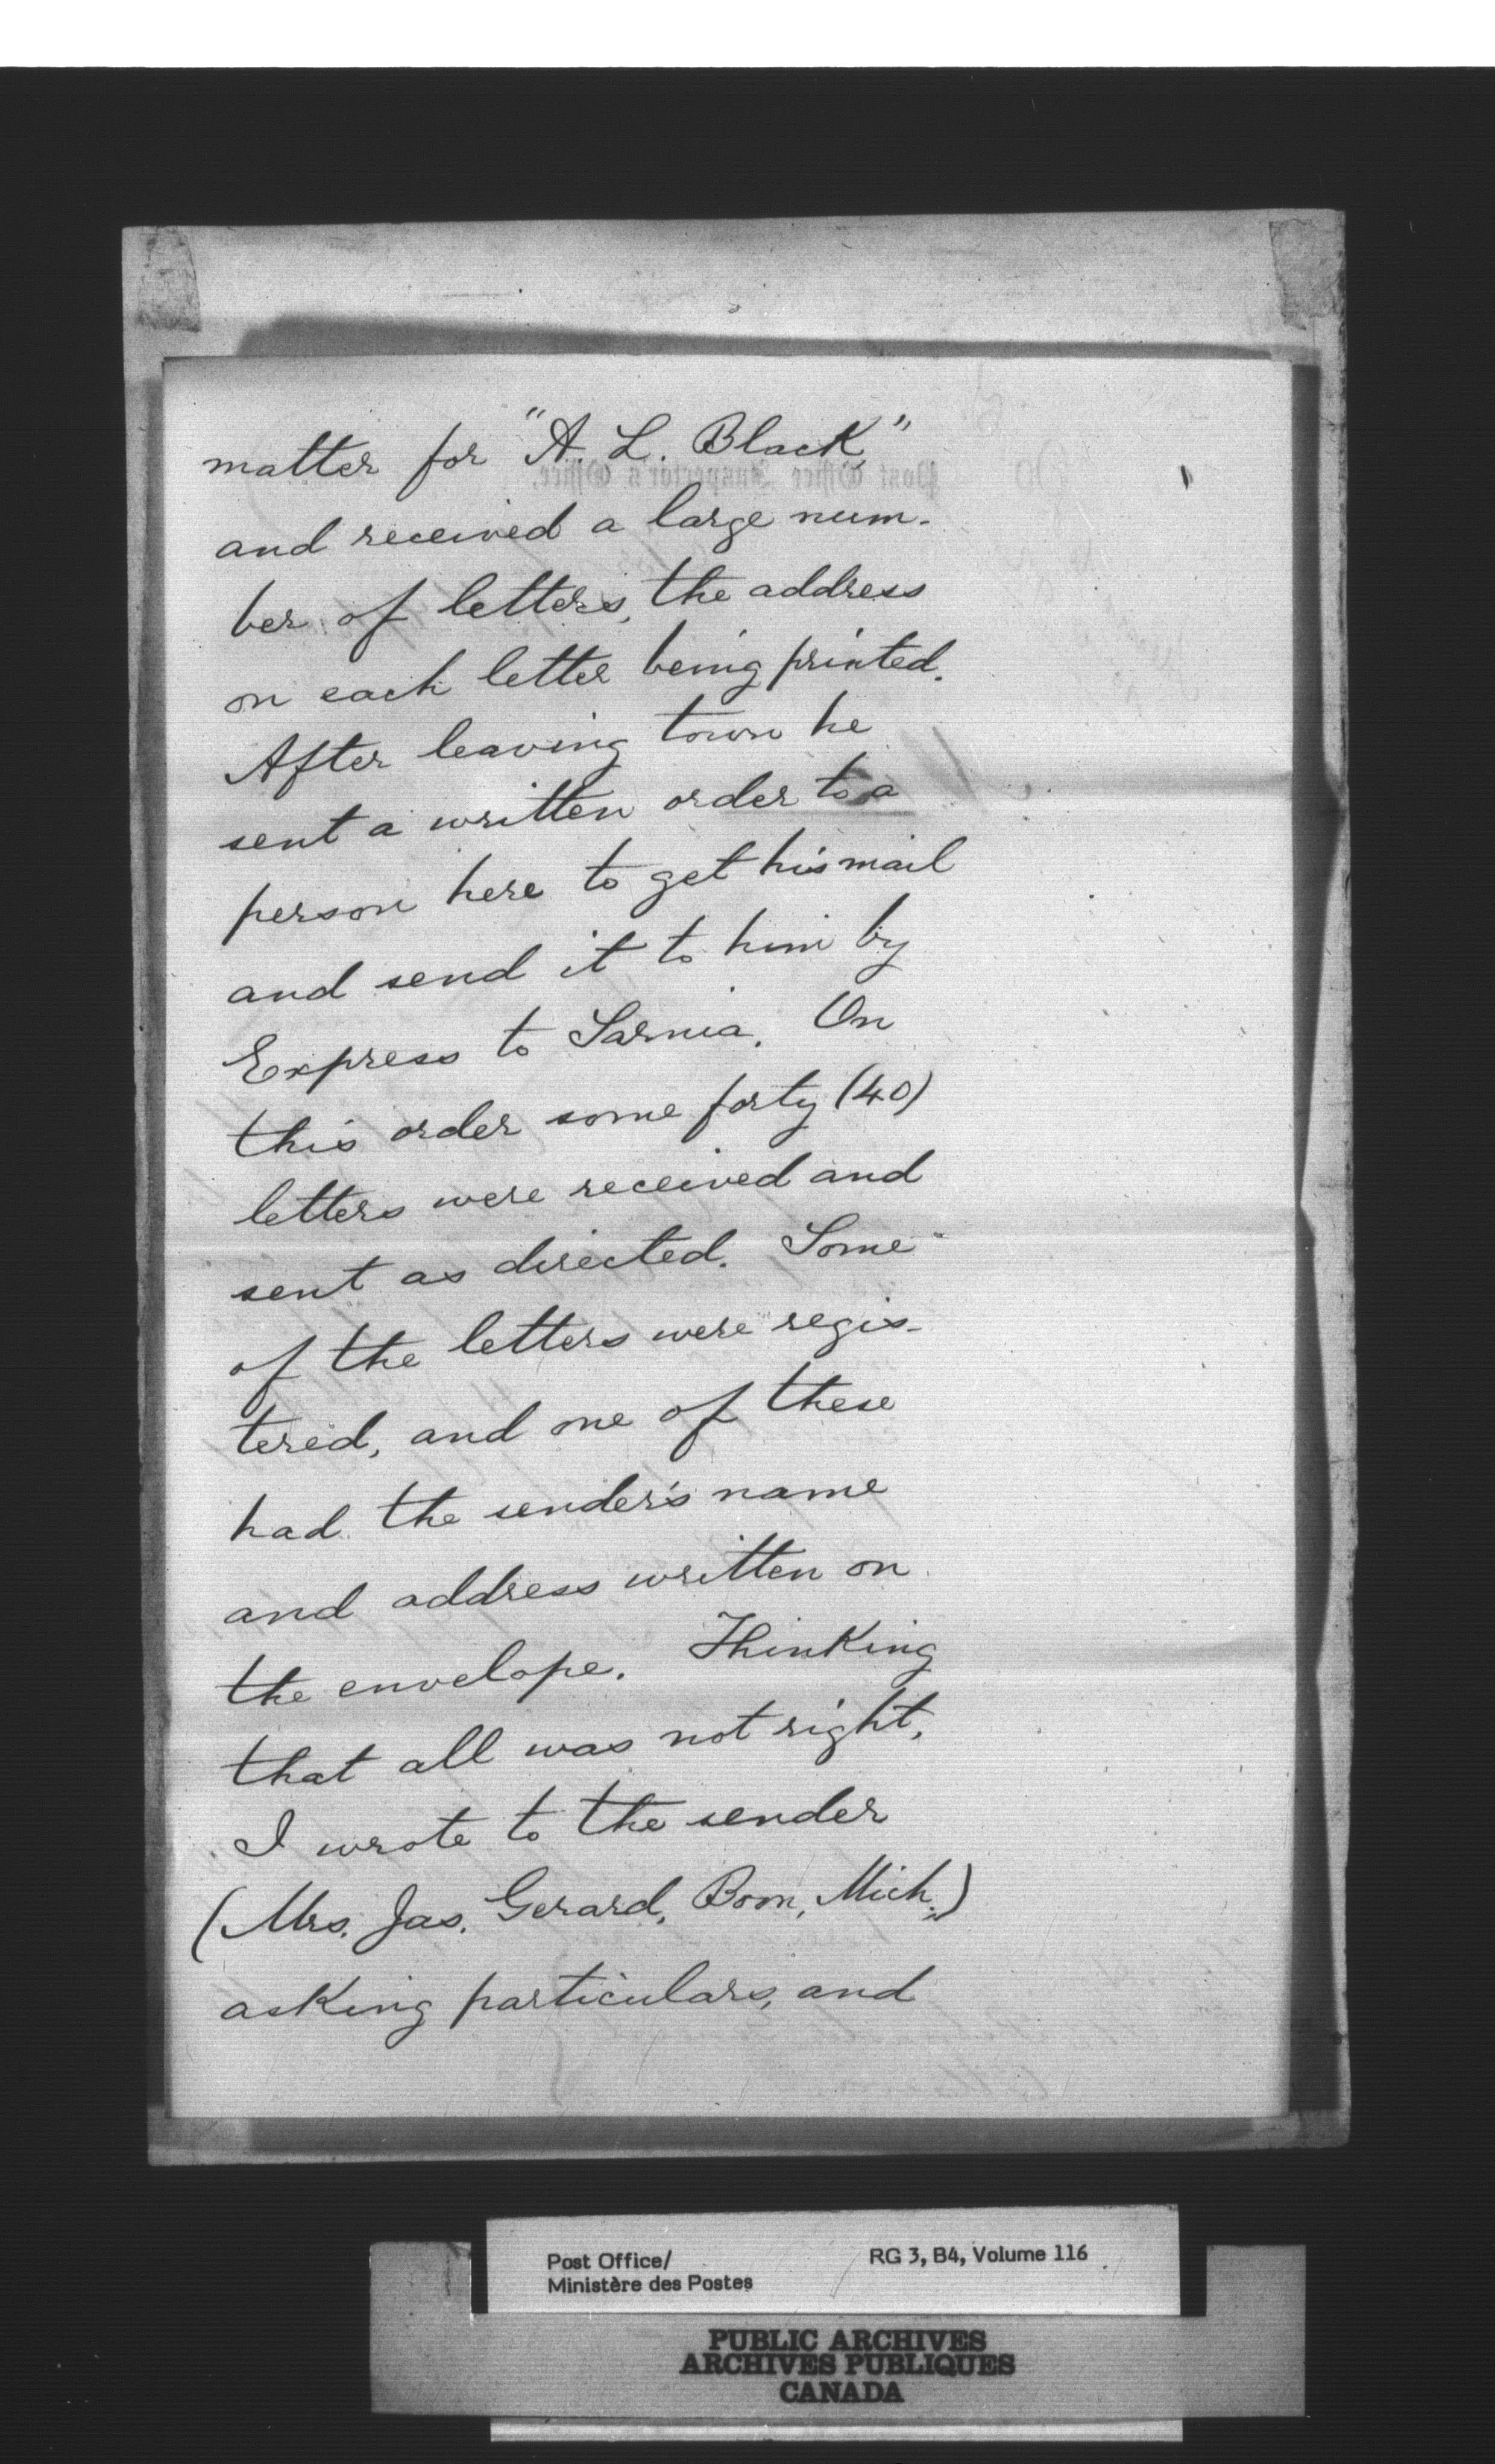 matter for "A. L. Black,"
Post Office Inspector's Office,
and received a large num-
ber of letters, the address
on each letter being printed.
After leaving town he
sent a written order to a
person here to get his mail
and send it to him by
Express to Sarnia. On
this order some forty (40)
letters were received and
sent as directed. Some
of the letters were regis-
tered, and one of these
had the sender's name
and address written on
the envelope. Thinking
that all was not right,
I wrote to the sender
(Mrs. Jas. Gerard, Boon, Mich.)
asking particulars, and
Post Office/ RG 3, B4, Volume 116
Ministère des Postes
PUBLIC ARCHIVES
ARCHIVES PUBLIQUES
CANADA